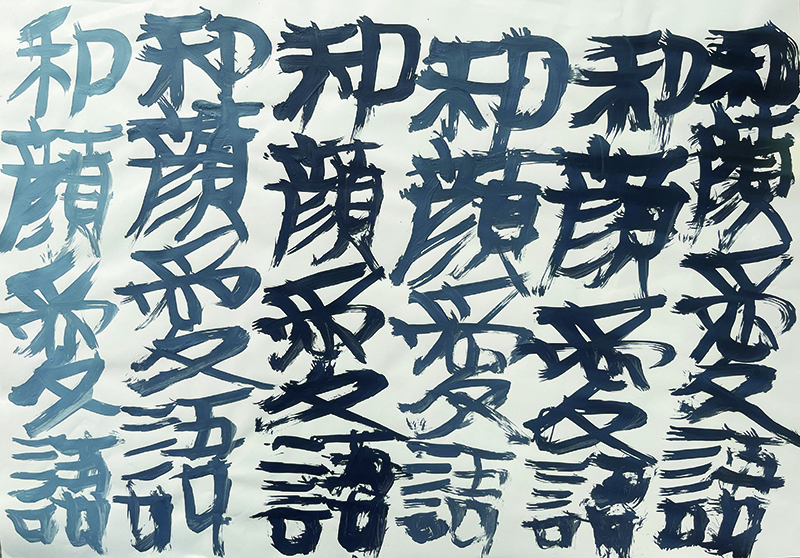 和顔愛語
和顔愛語
和顔愛語
和顔愛語
和顔愛語
和顔愛語